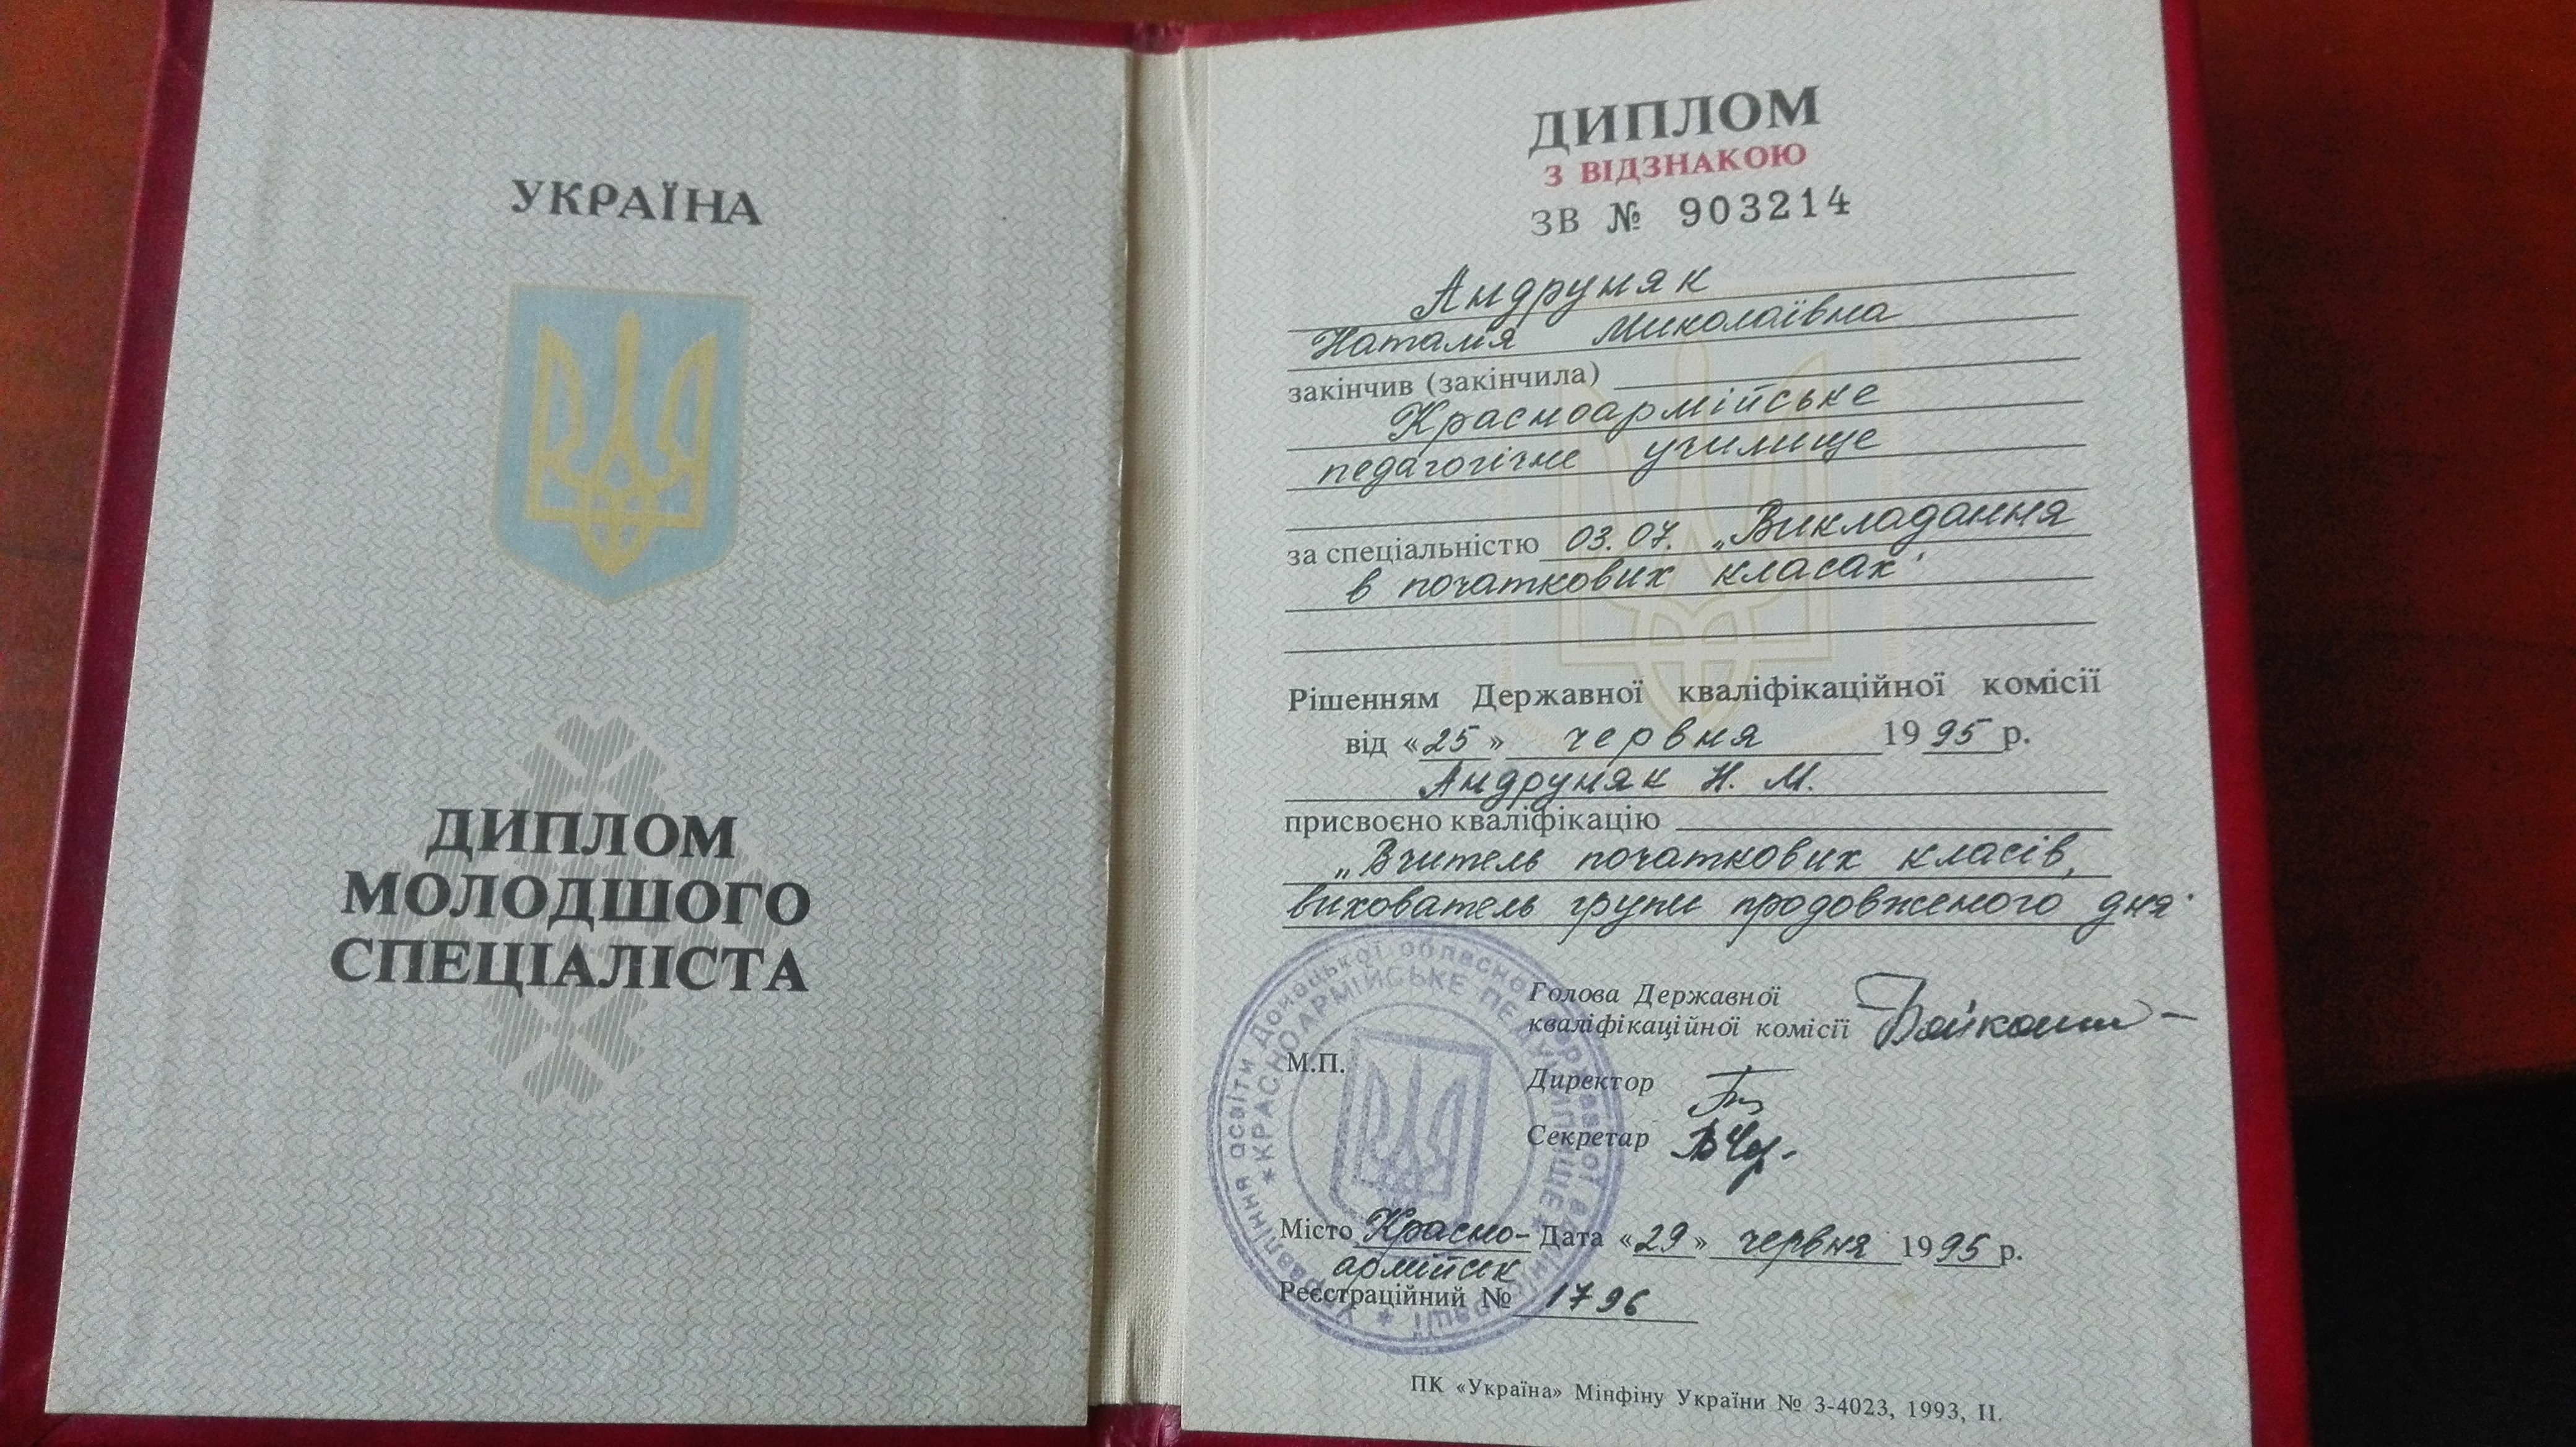 УКРАЇНА
ДИПЛОМ
МОЛОДШОГО
СПЕЦІАЛІСТА
ДИПЛОМ
З ВІДЗНАКОЮ
ЗВ № 903214
Андруняк
Наталія Миколаївна
закінчив (закінчила)
Красноармійське
педагогічне училище
за спеціальністю 03.07. „Викладання
в початкових класах"
Рішенням Державної кваліфікаційної комісії
від «25» червня 1995 р.
Андруняк Н. М.
присвоєно кваліфікацію
„Вчитель початкових класів,
вихователь групи продовженого дня"
Голова Державної
кваліфікаційної комісії
М.П.
Директор
Секретар
Місто Красно- Дата «29» червня 1995 р.
армійськ
Реєстраційний № 1796
Управління освіти Донецької обласної державної адміністрації
★ КРАСНОАРМІЙСЬКЕ ПЕДУЧИЛИЩЕ ★
ПК «Україна» Мінфіну України № 3-4023, 1993, II.